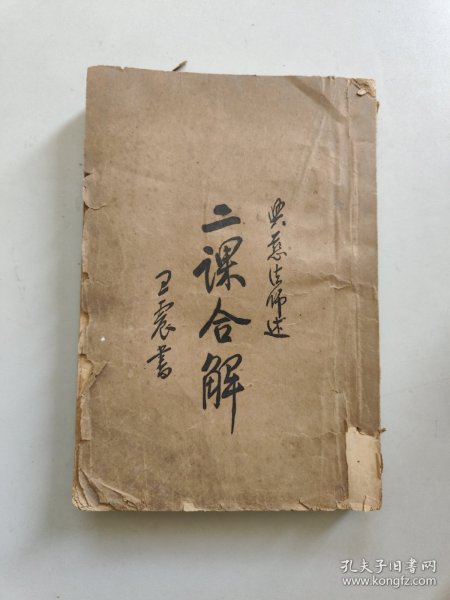 興慈法師述
二課合解
王震書
孔夫子旧书网
www.kongfz.com